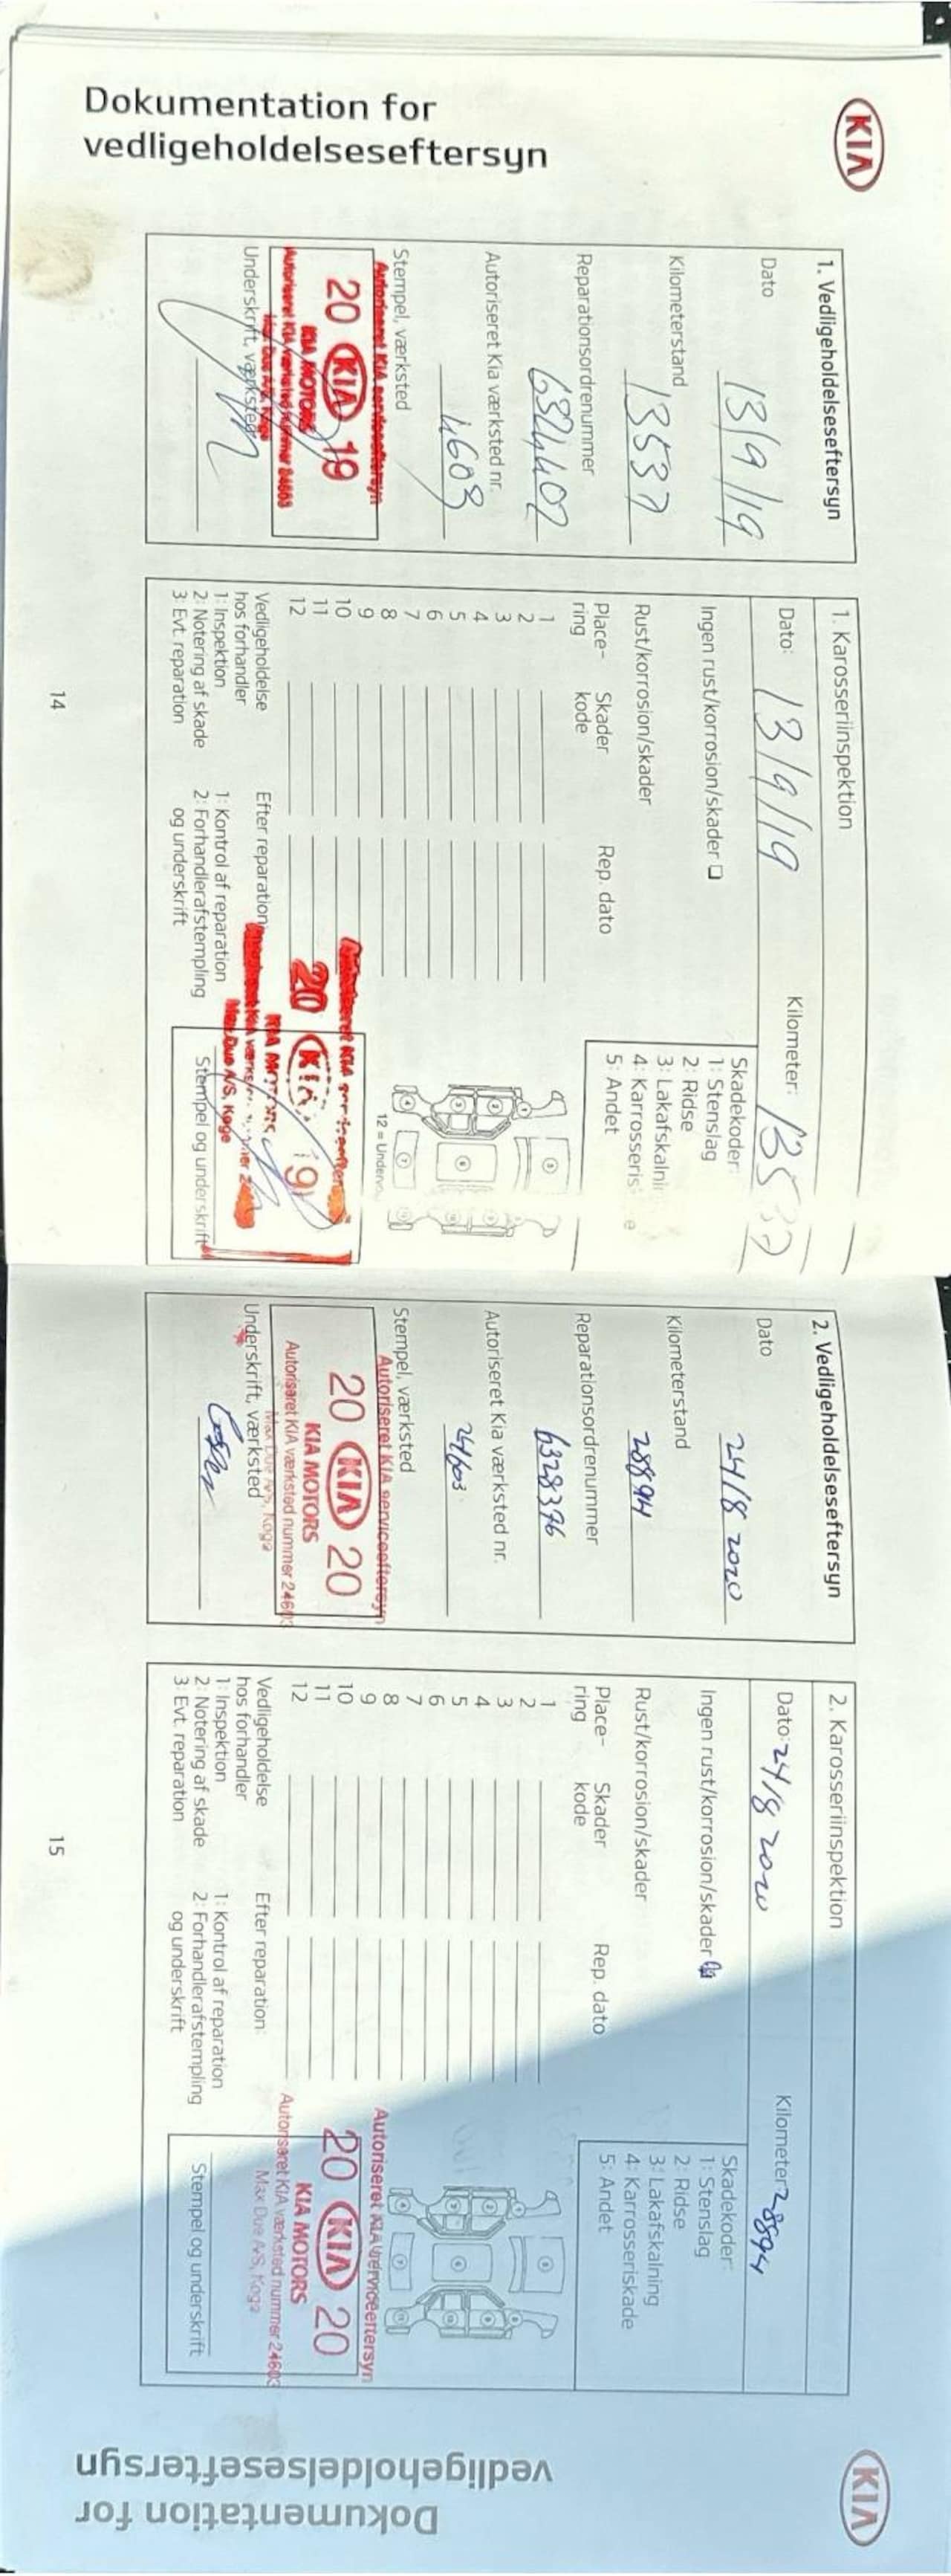 KIA
Dokumentation for
vedligeholdelseseftersyn
1. Vedligeholdelseseftersyn
Dato
13/9/19
Kilometerstand
13537
Reparationsordrenummer
Autoriseret Kia værksted nr.
Stempel, værksted
Autoriseret KIA serviceeftersyn
20 KIA 19
KIA MOTORS
Autoriseret KIA værksted nummer 24603
Underskrift, værksted
1. Karosseriinspektion
Dato: 13/9/19
Kilometer:
Ingen rust/korrosion/skader
Skadekoder:
1: Stenslag
2: Ridse
3: Lakafskalni
4: Karrosseris e
5: Andet
Rust/korrosion/skader
Place-
ring
Skader
kode
Rep. dato
1
2
3
4
5
6
7
8
9
10
11
12
12 = Underv
Vedligeholdelse
hos forhandler
1: Inspektion
2: Notering af skade
3: Evt. reparation
Efter reparation:
1: Kontrol af reparation
2: Forhandlerafstempling
og underskrift
20 KIA 19
Max Due A/S, Køge
Stempel og underskrift
14
2. Vedligeholdelseseftersyn
Dato
24/8 2020
Kilometerstand
28894
Reparationsordrenummer
6328376
Autoriseret Kia værksted nr.
24603
Stempel, værksted
Autoriseret KIA serviceeftersyn
20 KIA 20
KIA MOTORS
Autoriseret KIA værksted nummer 24603
Max Due A/S, Køge
Underskrift, værksted
2. Karosseriinspektion
Dato: 24/8 2020
Kilometer: 28894
Ingen rust/korrosion/skader
Skadekoder:
1: Stenslag
2: Ridse
3: Lakafskalning
4: Karrosseriskade
5: Andet
Rust/korrosion/skader
Place-
ring
Skader
kode
Rep. dato
1
2
3
4
5
6
7
8
9
10
11
12
Vedligeholdelse
hos forhandler
1: Inspektion
2: Notering af skade
3: Evt. reparation
Efter reparation:
1: Kontrol af reparation
2: Forhandlerafstempling
og underskrift
Autoriseret KIA serviceeftersyn
20 KIA 20
KIA MOTORS
Autoriseret KIA værksted nummer 24603
Max Due A/S, Køge
Stempel og underskrift
15
KIA
Dokumentation for
vedligeholdelseseftersyn